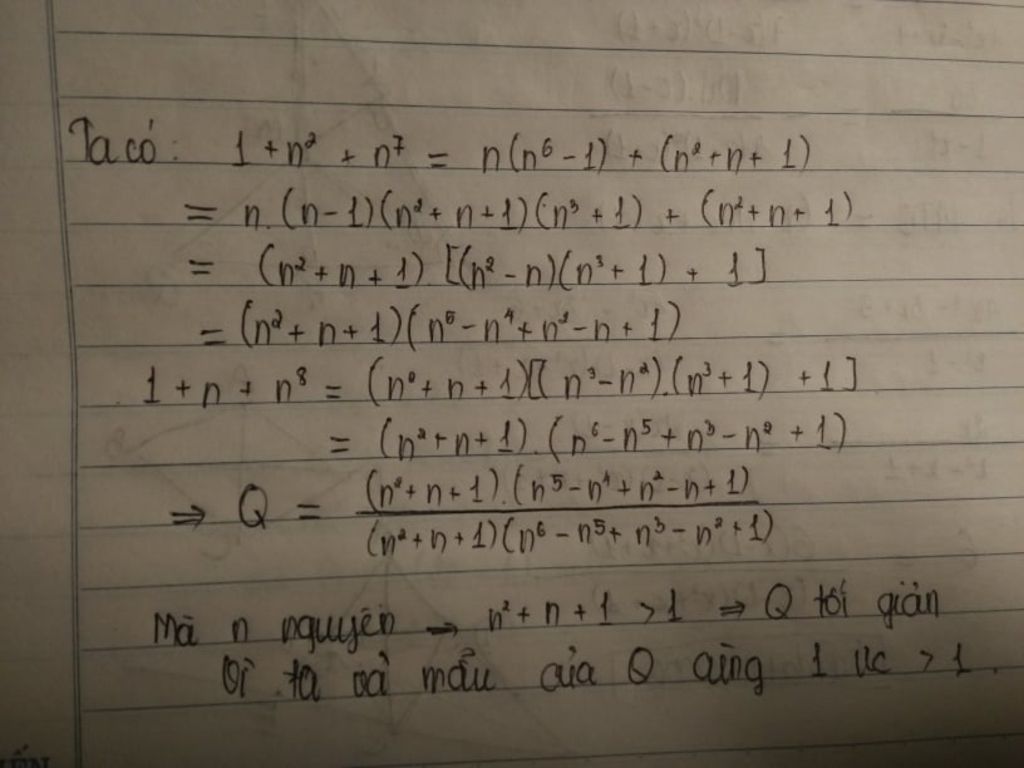 Ta có: 1 + n² + n⁷ = n(n⁶ - 1) + (n² + n + 1)
= n.(n-1)(n² + n + 1)(n³ + 1) + (n² + n + 1)
= (n² + n + 1) [(n² - n)(n³ + 1) + 1]
= (n² + n + 1)(n⁵ - n⁴ + n² - n + 1)
1 + n + n⁸ = (n² + n + 1)[(n³ - n²).(n³ + 1) + 1]
= (n² + n + 1).(n⁶ - n⁵ + n³ - n² + 1)
⇒ Q = (n² + n + 1).(n⁵ - n⁴ + n² - n + 1)
(n² + n + 1)(n⁶ - n⁵ + n³ - n² + 1)
Mà n nguyên → n² + n + 1 > 1 ⇒ Q tối giản
Vì tử và mẫu của Q cùng 1 ưc > 1.